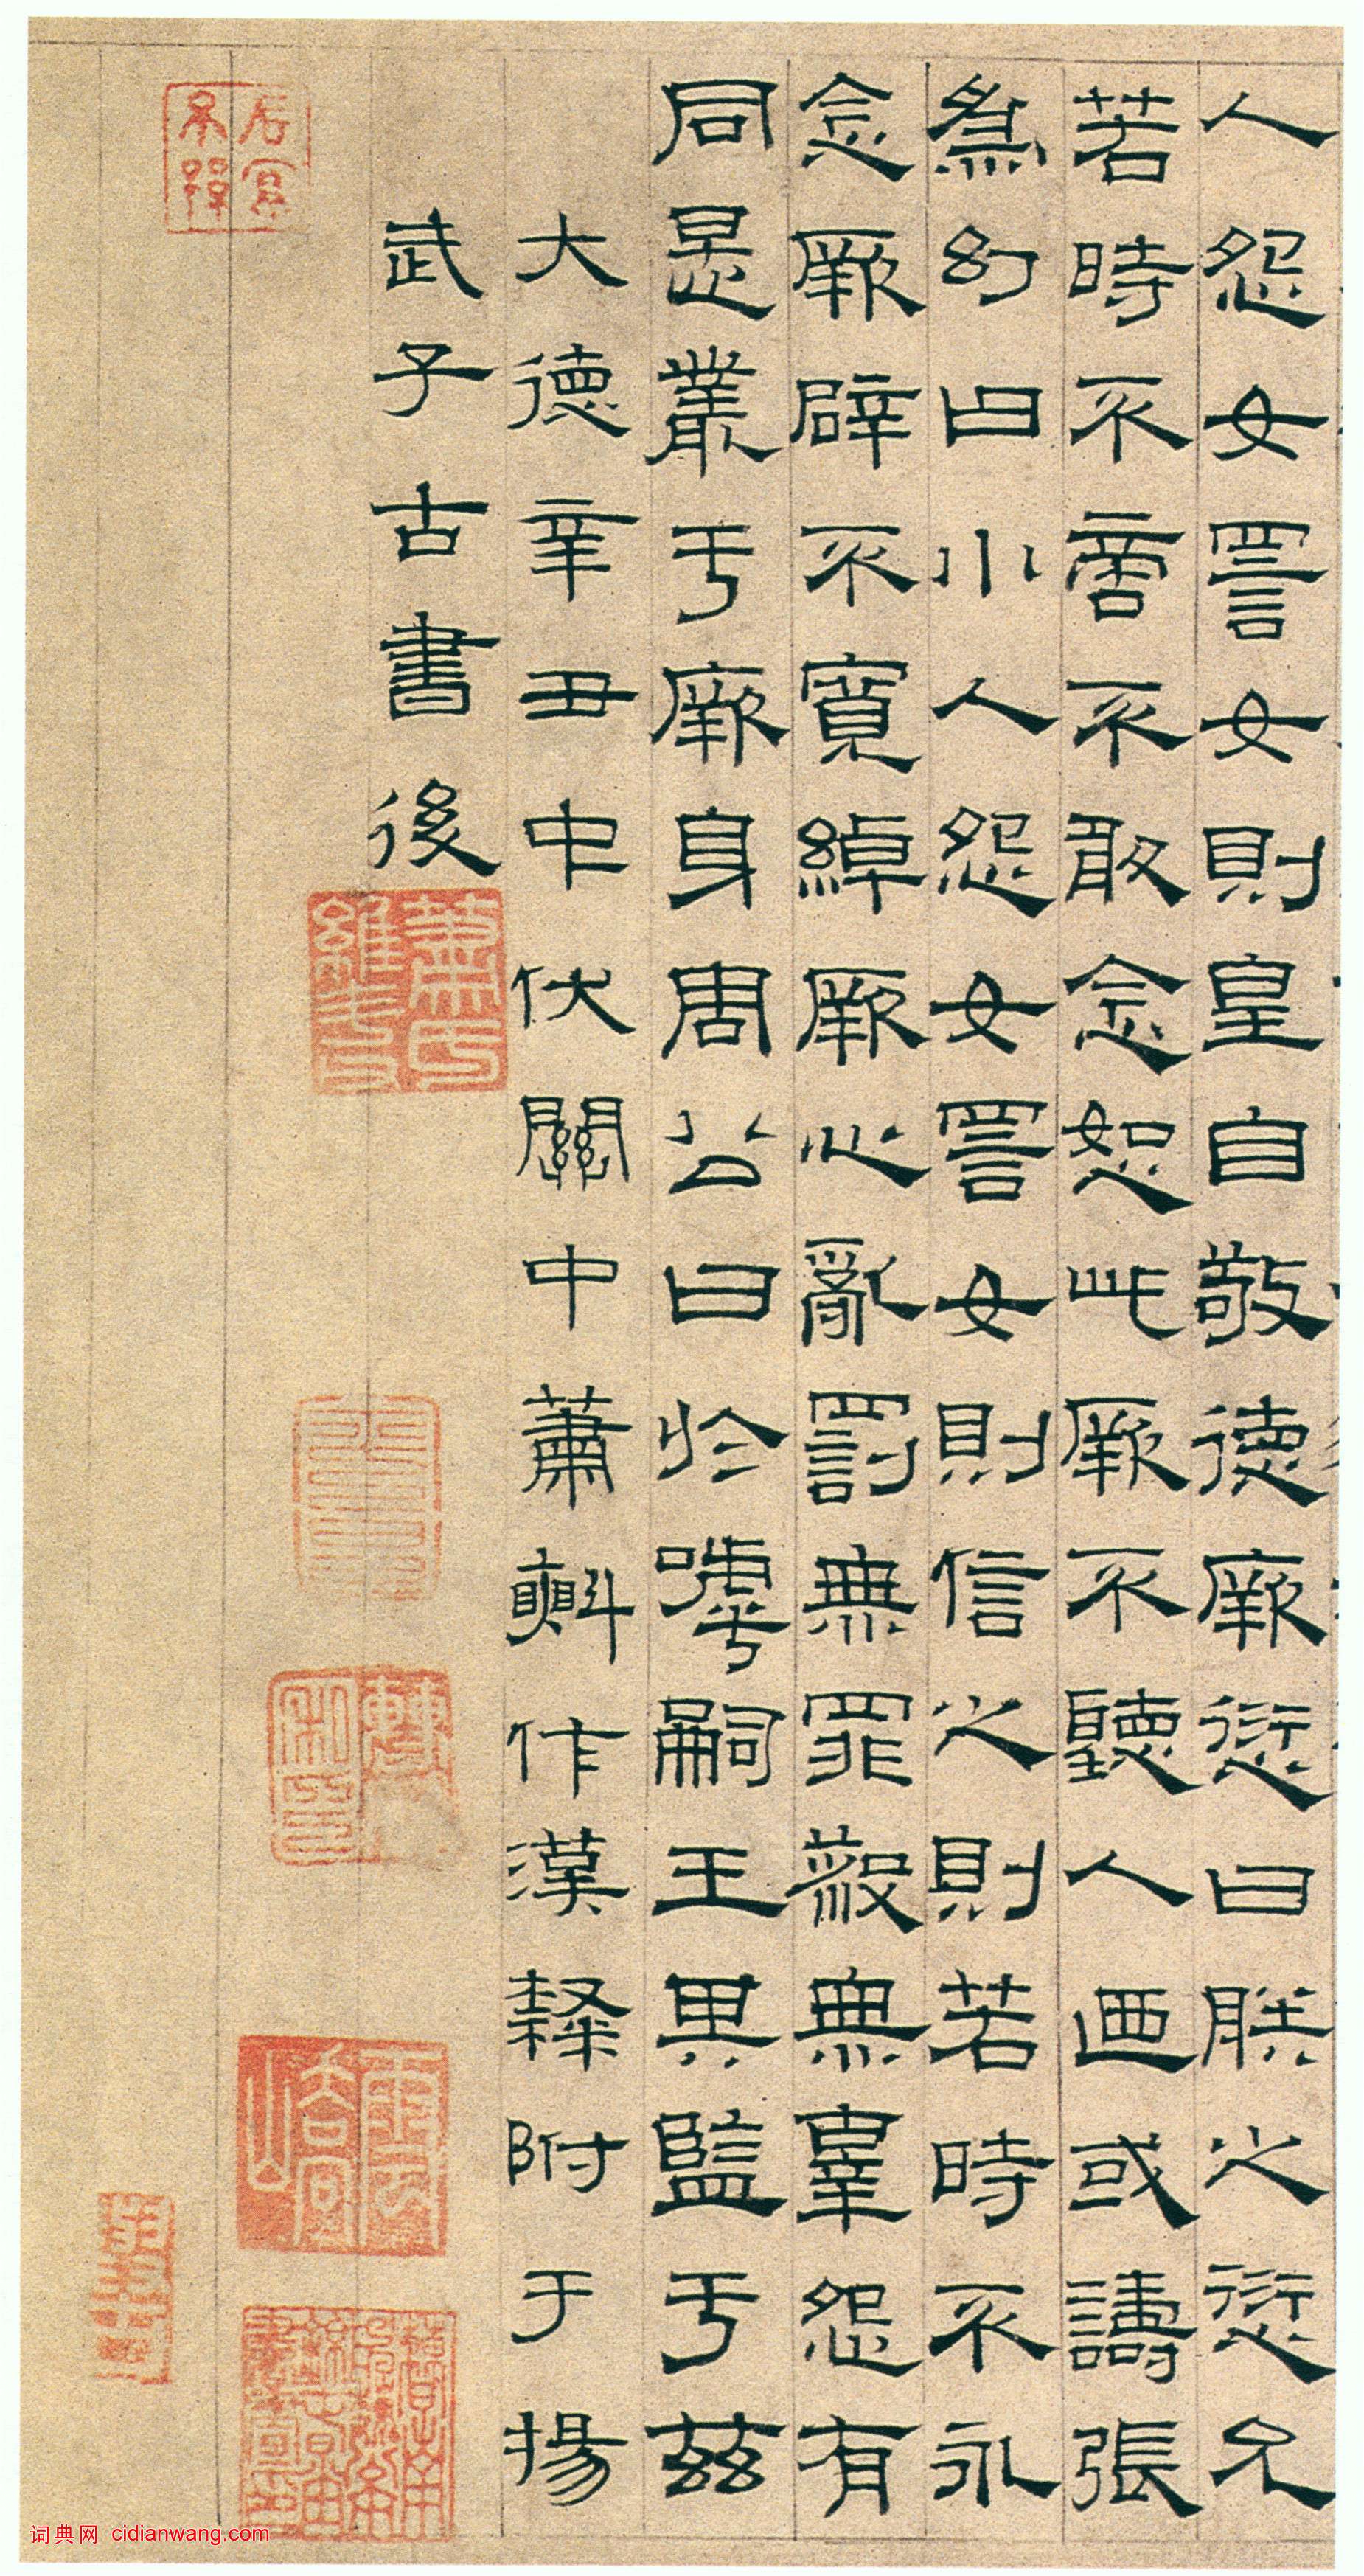 人怨女詈女則皇自敬德厥愆曰朕之愆允
若時不啻不敢念恕此厥不聽人迺或譸張
為幻曰小人怨女詈女則信之則若時不永
念厥辟不寬綽厥心亂罰無罪殺無辜怨有
同是叢于厥身周公曰於嘑嗣王其監于茲
大德辛丑中伏關中蕭㪺作漢隸附于揚
武子古書後
蕭氏維斗
词典网 cidianwang.com